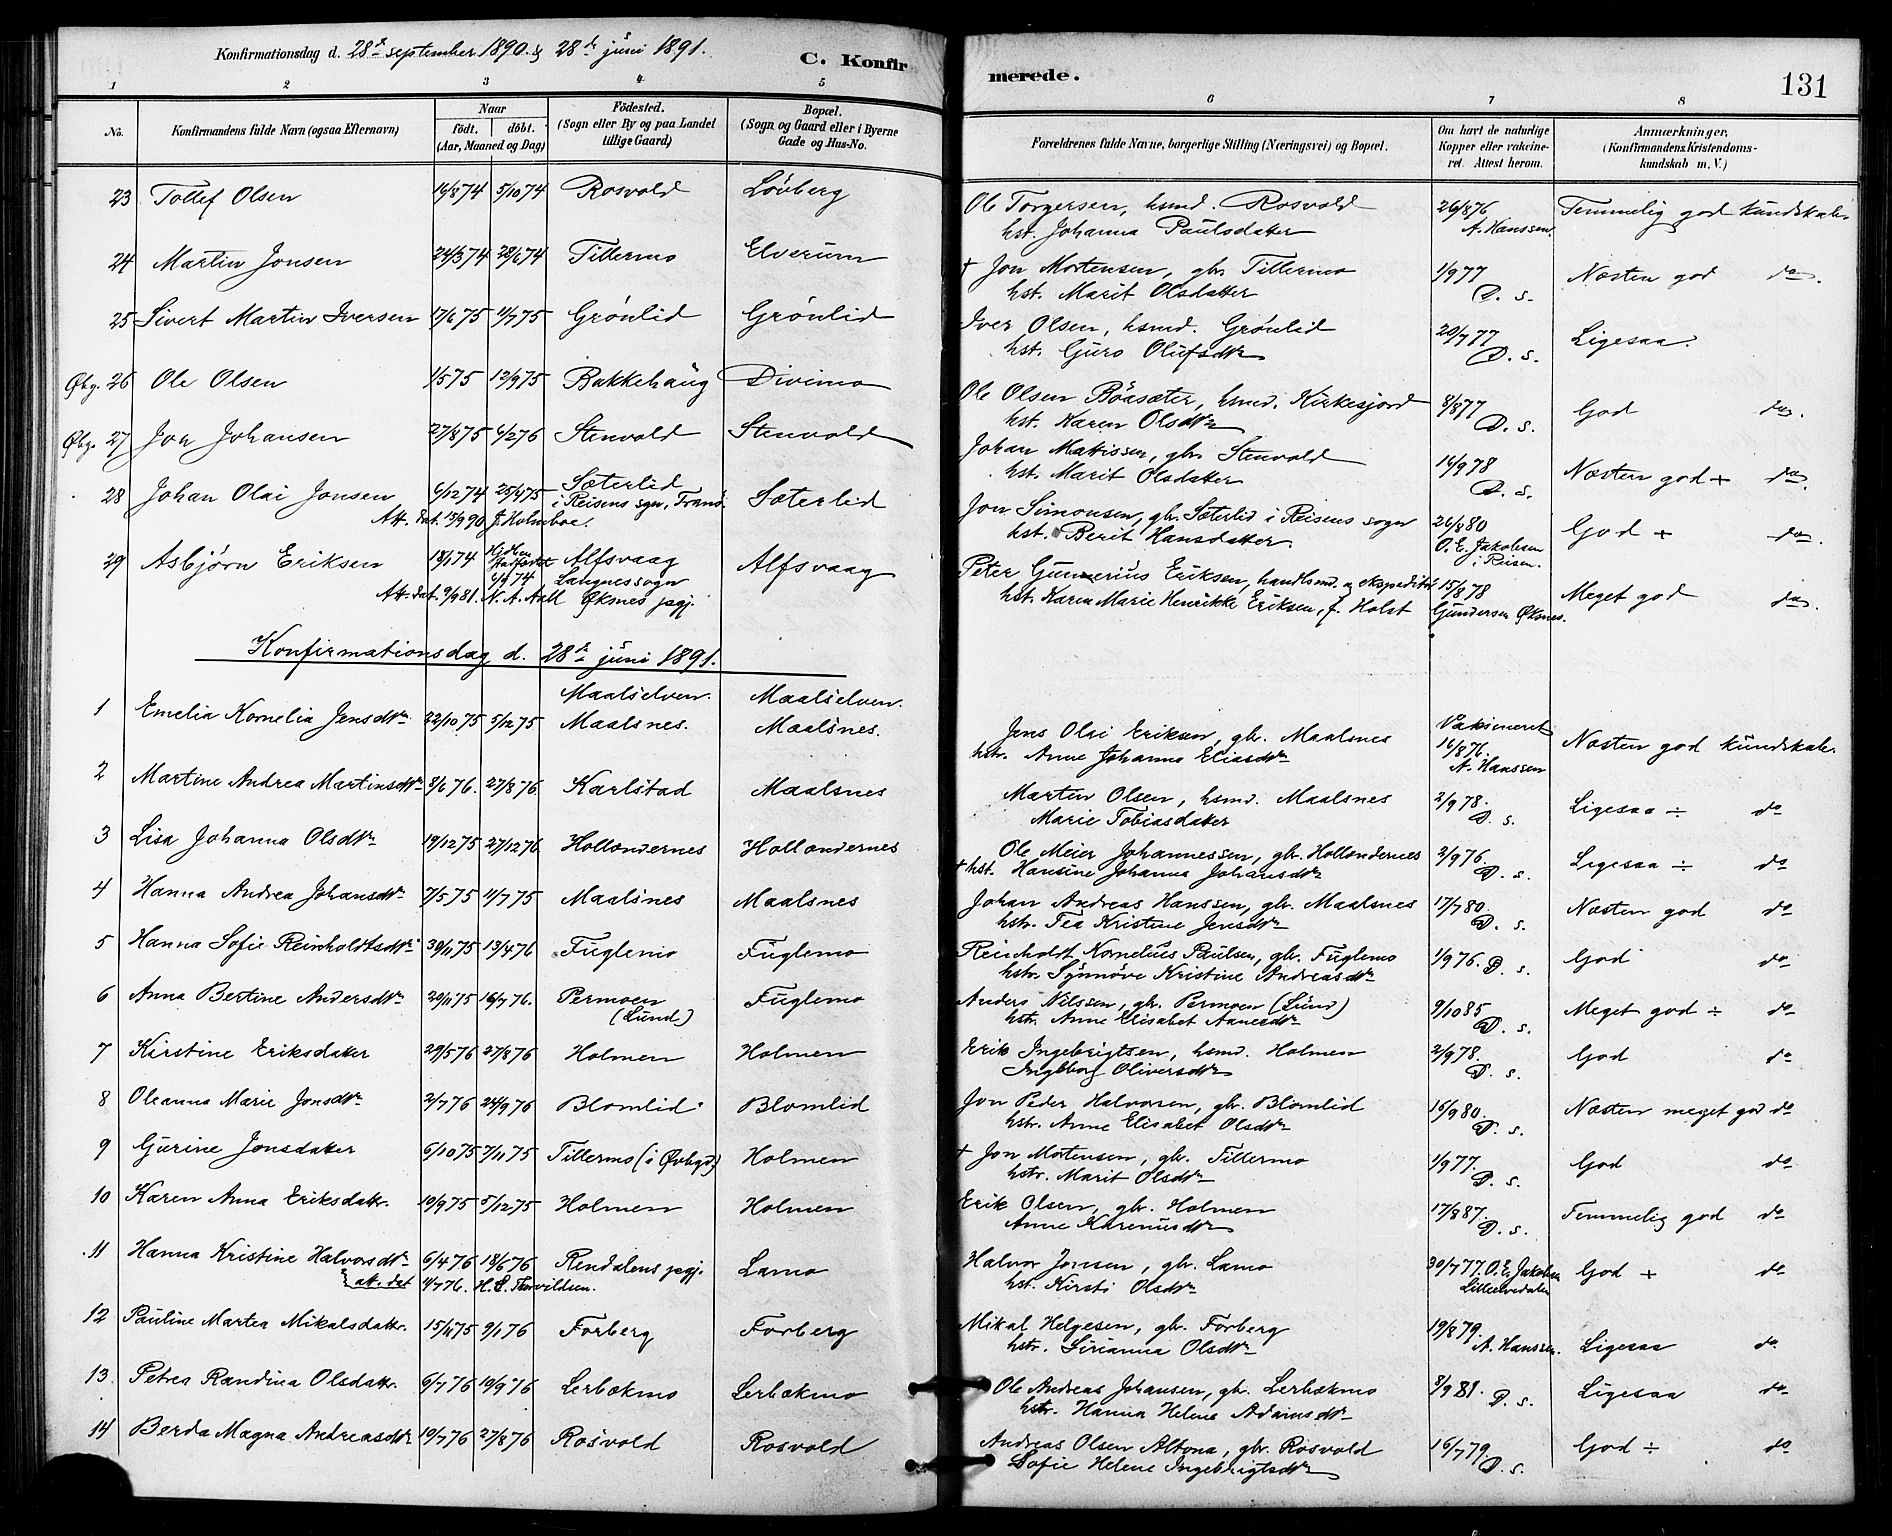 Konfirmationsdag d. 28de september 1890 & 28de juni 1891.
C. Konfirmerede.
131
1 2 3 4 5 6 7 8
No.
Konfirmandens fulde Navn (ogsaa Efternavn)
Naar
født. døbt.
(Aar, Maaned og Dag)
Fødested.
(Sogn eller By og paa Landet
tillige Gaard)
Bopæl.
(Sogn og Gaard eller i Byerne
Gade og Hus-No.
Forældrenes fulde Navne, borgerlige Stilling (Næringsvei) og Bopæl.
Om havt de naturlige
Kopper eller vakcine-
ret. Attest herom.
Anmærkninger.
(Konfirmandens Kristendoms-
kundskab m. V.)
23 Tollef Olsen 16/8 74 5/10 74 Rosvold Løvberg Ole Torgersen, hsmd. Rosvold 26/8 76 Temmelig god kundskab.
hst. Johanna Paulsdatter A. Hanssen.
24 Martin Jonsen 24/3 74 28/6 74 Tillermo Elverum † Jon Mortensen, gbr. Tillermo 1/9 77 Næsten god do.
hst. Marit Olsdatter D. s.
25 Sivert Martin Iversen 17/6 75 11/7 75 Grønlid Grønlid Iver Olsen, hsmd. Grønlid 20/7 77 Ligesaa.
hst. Guro Olufsdtr D. s.
Øbg. 26 Ole Olsen 1/5 75 12/9 75 Bakkehaug Divimo Ole Olsen Bøasæter, hsmd. Kirkesjord 8/8 77 God do.
hst. Karen Olsdtr D. s.
Øbg. 27 Jon Johansen 27/8 75 6/2 76 Stenvold Stenvold Johan Mattissen, gbr. Stenvold 14/9 78 Næsten god + do.
hst. Marit Olsdatter D. s.
28 Johan Olai Jonsen 6/12 74 25/4 75 Sæterlid Sæterlid Jon Simonsen, gbr. Sæterlid i Reisens sogn 26/8 80 God + do.
i Reisens sgn, Tranø
Att. dat. 15/9 90 J. Holmboe. hst. Berit Hansdatter. O. E. Jakobsen
i Reisen.
29 Asbjørn Eriksen 18/1 74 6/4 74 Alfsvaag Alfsvaag Peter Gunnerius Eriksen, handlsmd. og ekspeditør 15/8 78 Meget god do.
Langnes sogn
Att. dat. 9/9 81. N. A. Aall Øksnes pgj. hst. Karen Marie Henrikke Eriksen, f. Holst Gundersen Øksnes.
Konfirmationsdag d. 28de juni 1891.
Maalselven. Maalselven.
1 Emelia Kornelia Jensdtr 22/10 75 5/12 75 Maalsnes. Maalsnes. Jens Olai Eriksen, gbr. Maalsnes Vaksineret
hstr. Anne Johanna Eliasdtr 16/8 76. A. Hanssen Næsten god kundskab.
2 Martine Andrea Martinsdtr 8/6 76. 27/8 76. Karlstad Maalsnes Martin Olsen, hsmd. Maalsnes 2/9 78. Ligesaa ÷ do
Marie Tobiasdatter D. s.
3 Lisa Johanna Olsdtr 19/12 75 27/12 76 Hollondernes Hollondernes Ole Meier Johannessen, gbr. Hollondernes 2/9 76. Ligesaa ÷ do
† hst. Hansine Johanna Johansdtr D. s.
4 Hanna Andrea Johansdtr 7/5 75 11/7 75 Maalsnes Maalsnes Johan Andreas Hanssen, gbr. Maalsnes 17/7 80. Næsten god do
hstr. Tea Kristine Jensdtr D. s.
5 Hanna Sofie Reinholdtsdtr 30/11 75 13/4 76 Fuglemo Fuglemo Reinholdt Kornelius Paulsen, gbr. Fuglemo 1/9 76. D. s. God do
hstr. Synnøve Kristine Andreasdtr
6 Anna Bertine Andersdtr 20/11 75 16/7 76. Permoen Fuglemo Anders Nilssen, gbr. Permoen (Lund) 9/10 85 Meget god ÷ do
(Lund) hstr. Anne Elisabet Aanesdtr D. s.
7 Kirstine Eriksdatter 29/5 76 27/8 76 Holmen Holmen Erik Ingebrigtsen, hsmd. Holmen 2/9 78. God do
Ingeborg Oliversdtr D. s.
8 Oleanna Marie Jonsdtr 2/7 76 24/9 76 Blomlid Blomlid Jon Peder Halvorsen, gbr. Blomlid 16/9 80. Næsten meget god do
hstr. Anne Elisabet Olsdtr D. s.
9 Gurine Jonsdatter 6/10 75 7/11 75 Tillermo (i Øvbgd) Holmen † Jon Mortensen, gbr. Tillermo 1/9 77. God do
hstr. Marit Olsdtr D. s.
10 Karen Anna Eriksdattr. 19/9 75 5/12 75 Holmen Holmen Erik Olsen, gbr. Holmen 17/8 87. Temmelig god do
Anne Karenusdtr D. s.
11 Hanna Kristine Halvorsdtr 6/4 76 18/6 76 Rendalens pgj. Lamo Halvor Jonsen, gbr. Lamo 30/7 77. O. E. Jakobsen God + do
att. dat 11/7 76. hst. Kirsti Olsdtr
12 Pauline Martea Mikalsdattr. 15/11 75 9/1 76 Forberg Forberg Mikal Helgesen, gbr. Forberg 19/8 79. Ligesaa do
hstr. Sirianna Olsdtr A. Hanssen.
13. Petrea Randina Olsdattr. 6/7 76 10/9 76 Lerbækmo Lerbækmo Ole Andreas Johansen, gbr. Lerbækmo 8/9 81. D. s. Ligesaa do
hstr. Hanna Helene Adamsdtr
14 Berda Magna Andreasdtr 19/7 76 27/8 76 Rosvold Rosvold Andreas Olsen Altona, gbr. Rosvold 16/7 79. God ÷ do
Sofie Helene Ingebrigtsdtr D. s.